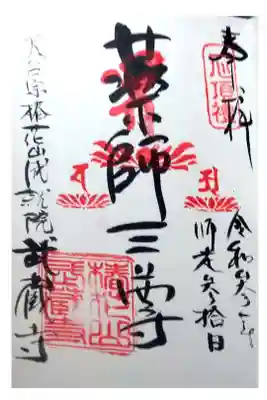 奉拝
令和参年
師走参拾日
薬師三尊
天台宗椿花山成就院武蔵寺